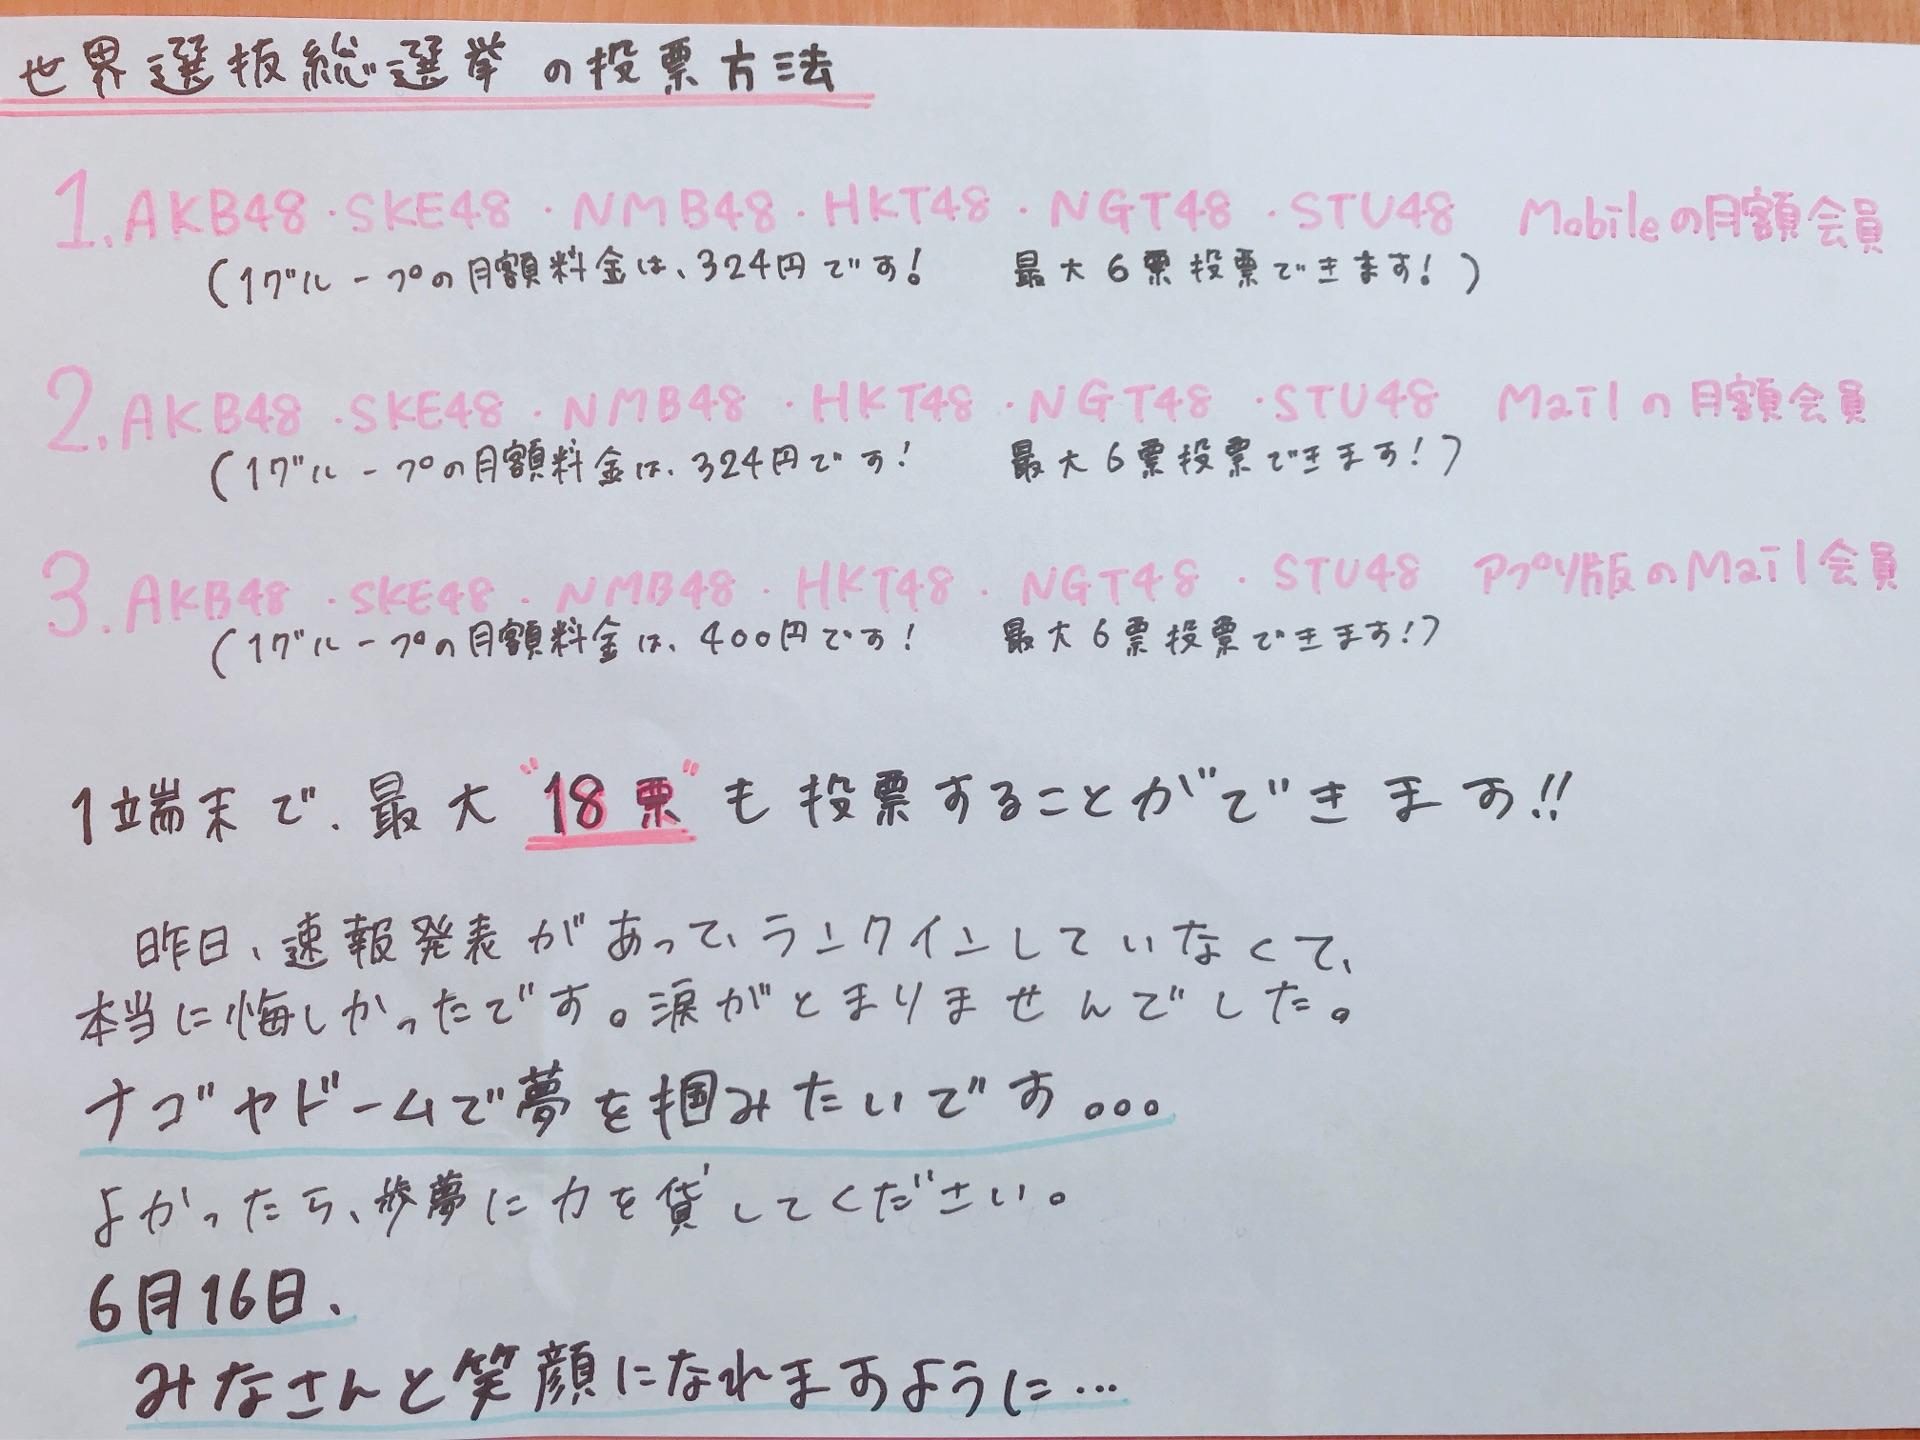 世界選抜総選挙の投票方法
1.AKB48・SKE48・NMB48・HKT48・NGT48・STU48 Mobileの月額会員
(1グループの月額料金は、324円です! 最大6票投票できます!)
2.AKB48・SKE48・NMB48・HKT48・NGT48・STU48 Mailの月額会員
(1グループの月額料金は、324円です! 最大6票投票できます!)
3.AKB48・SKE48・NMB48・HKT48・NGT48・STU48 アプリ版のMail会員
(1グループの月額料金は、400円です! 最大6票投票できます!)
1端末で、最大"18票"も投票することができます!!
昨日、速報発表があって、ランクインしていなくて、
本当に悔しかったです。涙がとまりませんでした。
ナゴヤドームで夢を掴みたいです。。。
よかったら、歩夢に力を貸してください。
6月16日、
みなさんと笑顔になれますように…